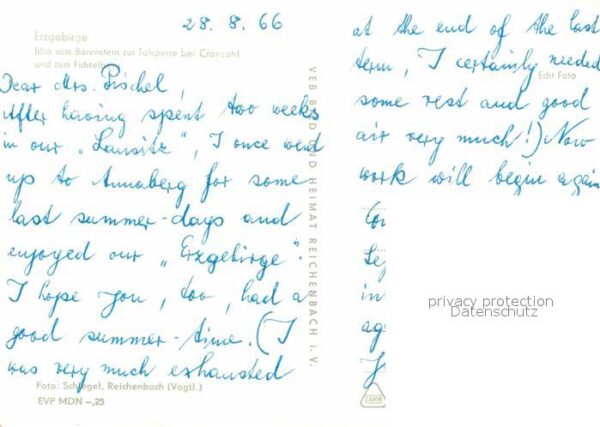 28. 8. 66
Erzgebirge
Blick vom Bärenstein zur Talsperre bei Cranzahl
und zum
Dear Mrs. Püschel,
After having spent two weeks
in our „Lausitz", I once went
up to Annaberg for some
last summer-days and
enjoyed our „Erzgebirge".
I hope you, too, had a
good summer-time. (I
was very much exhausted
Foto: Schlegel, Reichenbach (Vogtl.)
EVP MDN –,25
VEB BILD UND HEIMAT REICHENBACH i. V.
at the end of the last
term, I certainly needed
Echt Foto
some rest and good
air very much!) Now
work will begin again
in
privacy protection
Datenschutz